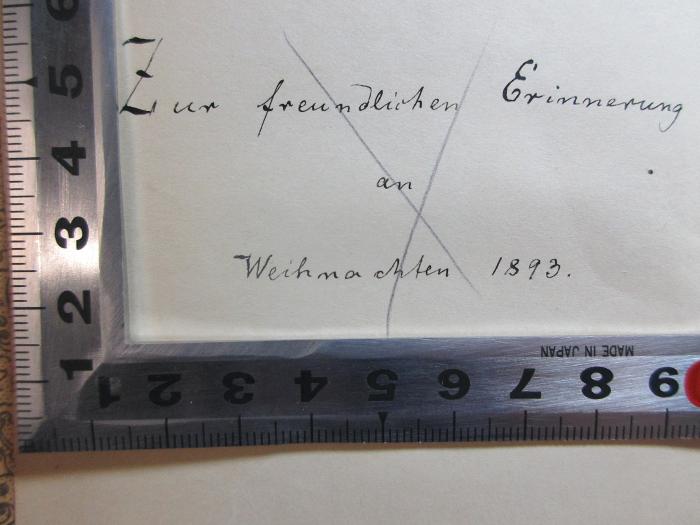 Zur freundlichen Erinnerung
an
Weihnachten 1893.
6
5
4
3
2
1
MADE IN JAPAN
1 2 3 4 5 6 7 8 9